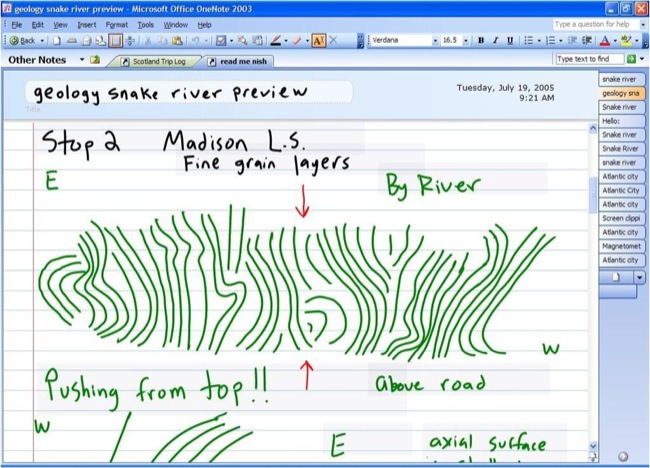 geology snake river preview - Microsoft Office OneNote 2003
File Edit View Insert Format Tools Window Help
Type a question for help
Back
Verdana 16.5 B I U
Other Notes
Scotland Trip Log
read me nish
Type text to find
geology snake river preview
Title
Tuesday, July 19, 2005
9:21 AM
Stop 2 Madison L.S.
Fine grain layers
E
By River
W
Pushing from top!!
above road
W
E
axial surface
snake river
geology sna
Snake river
Hello:
Snake river
Snake River
snake river
Atlantic city
Atlantic City
Atlantic city
Screen clippi
Atlantic city
Magnetomet
Atlantic city